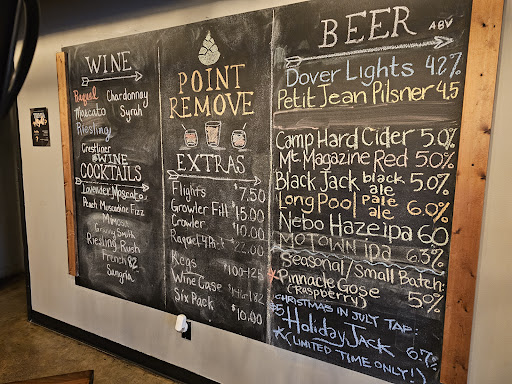 WINE
Chardonnay
Moscato Syrah
Riesling
Crestliner
WINE
COCKTAILS
Lavender Moscato
Peach Muscadine Fizz
Mimosa
Granny Smith
Riesling Rush
French 82
Sangria
POINT
REMOVE
EXTRAS
Flights $7.50
Growler Fill $15.00
Crowler $10.00
$22.00
Kegs $100-125
Wine Case
Six Pack $10.00
BEER ABV
Dover Lights 4.2%
Petit Jean Pilsner 4.5
Camp Hard Cider 5.0%
Mt. Magazine Red 5.0%
Black Jack black ale 5.0%
Long Pool pale ale 6.0%
Nebo Haze ipa 6.0
MOTOWN ipa 6.3%
Seasonal/Small Batch:
Pinnacle Gose 5.0%
(Raspberry)
CHRISTMAS IN JULY TAP:
Holiday Jack 6.7%
(LIMITED TIME ONLY!)